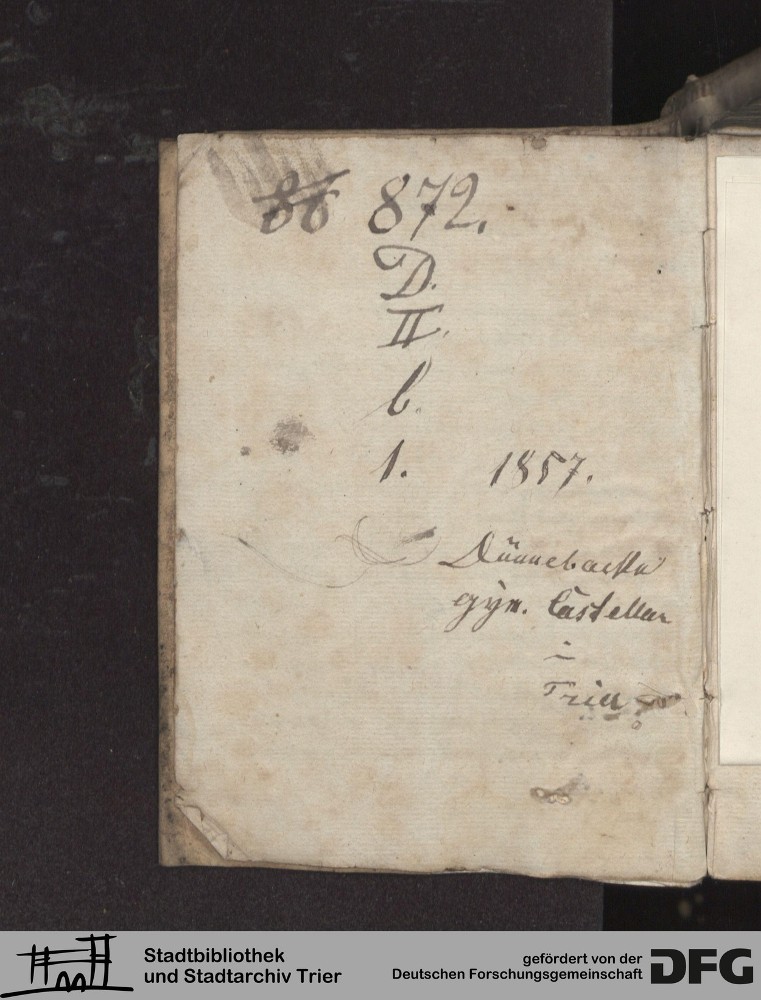 86 872.
D.
II.
b.
1. 1857.
gÿm. Castellan
i
Trier
Stadtbibliothek
und Stadtarchiv Trier
gefördert von der
Deutschen Forschungsgemeinschaft
DFG